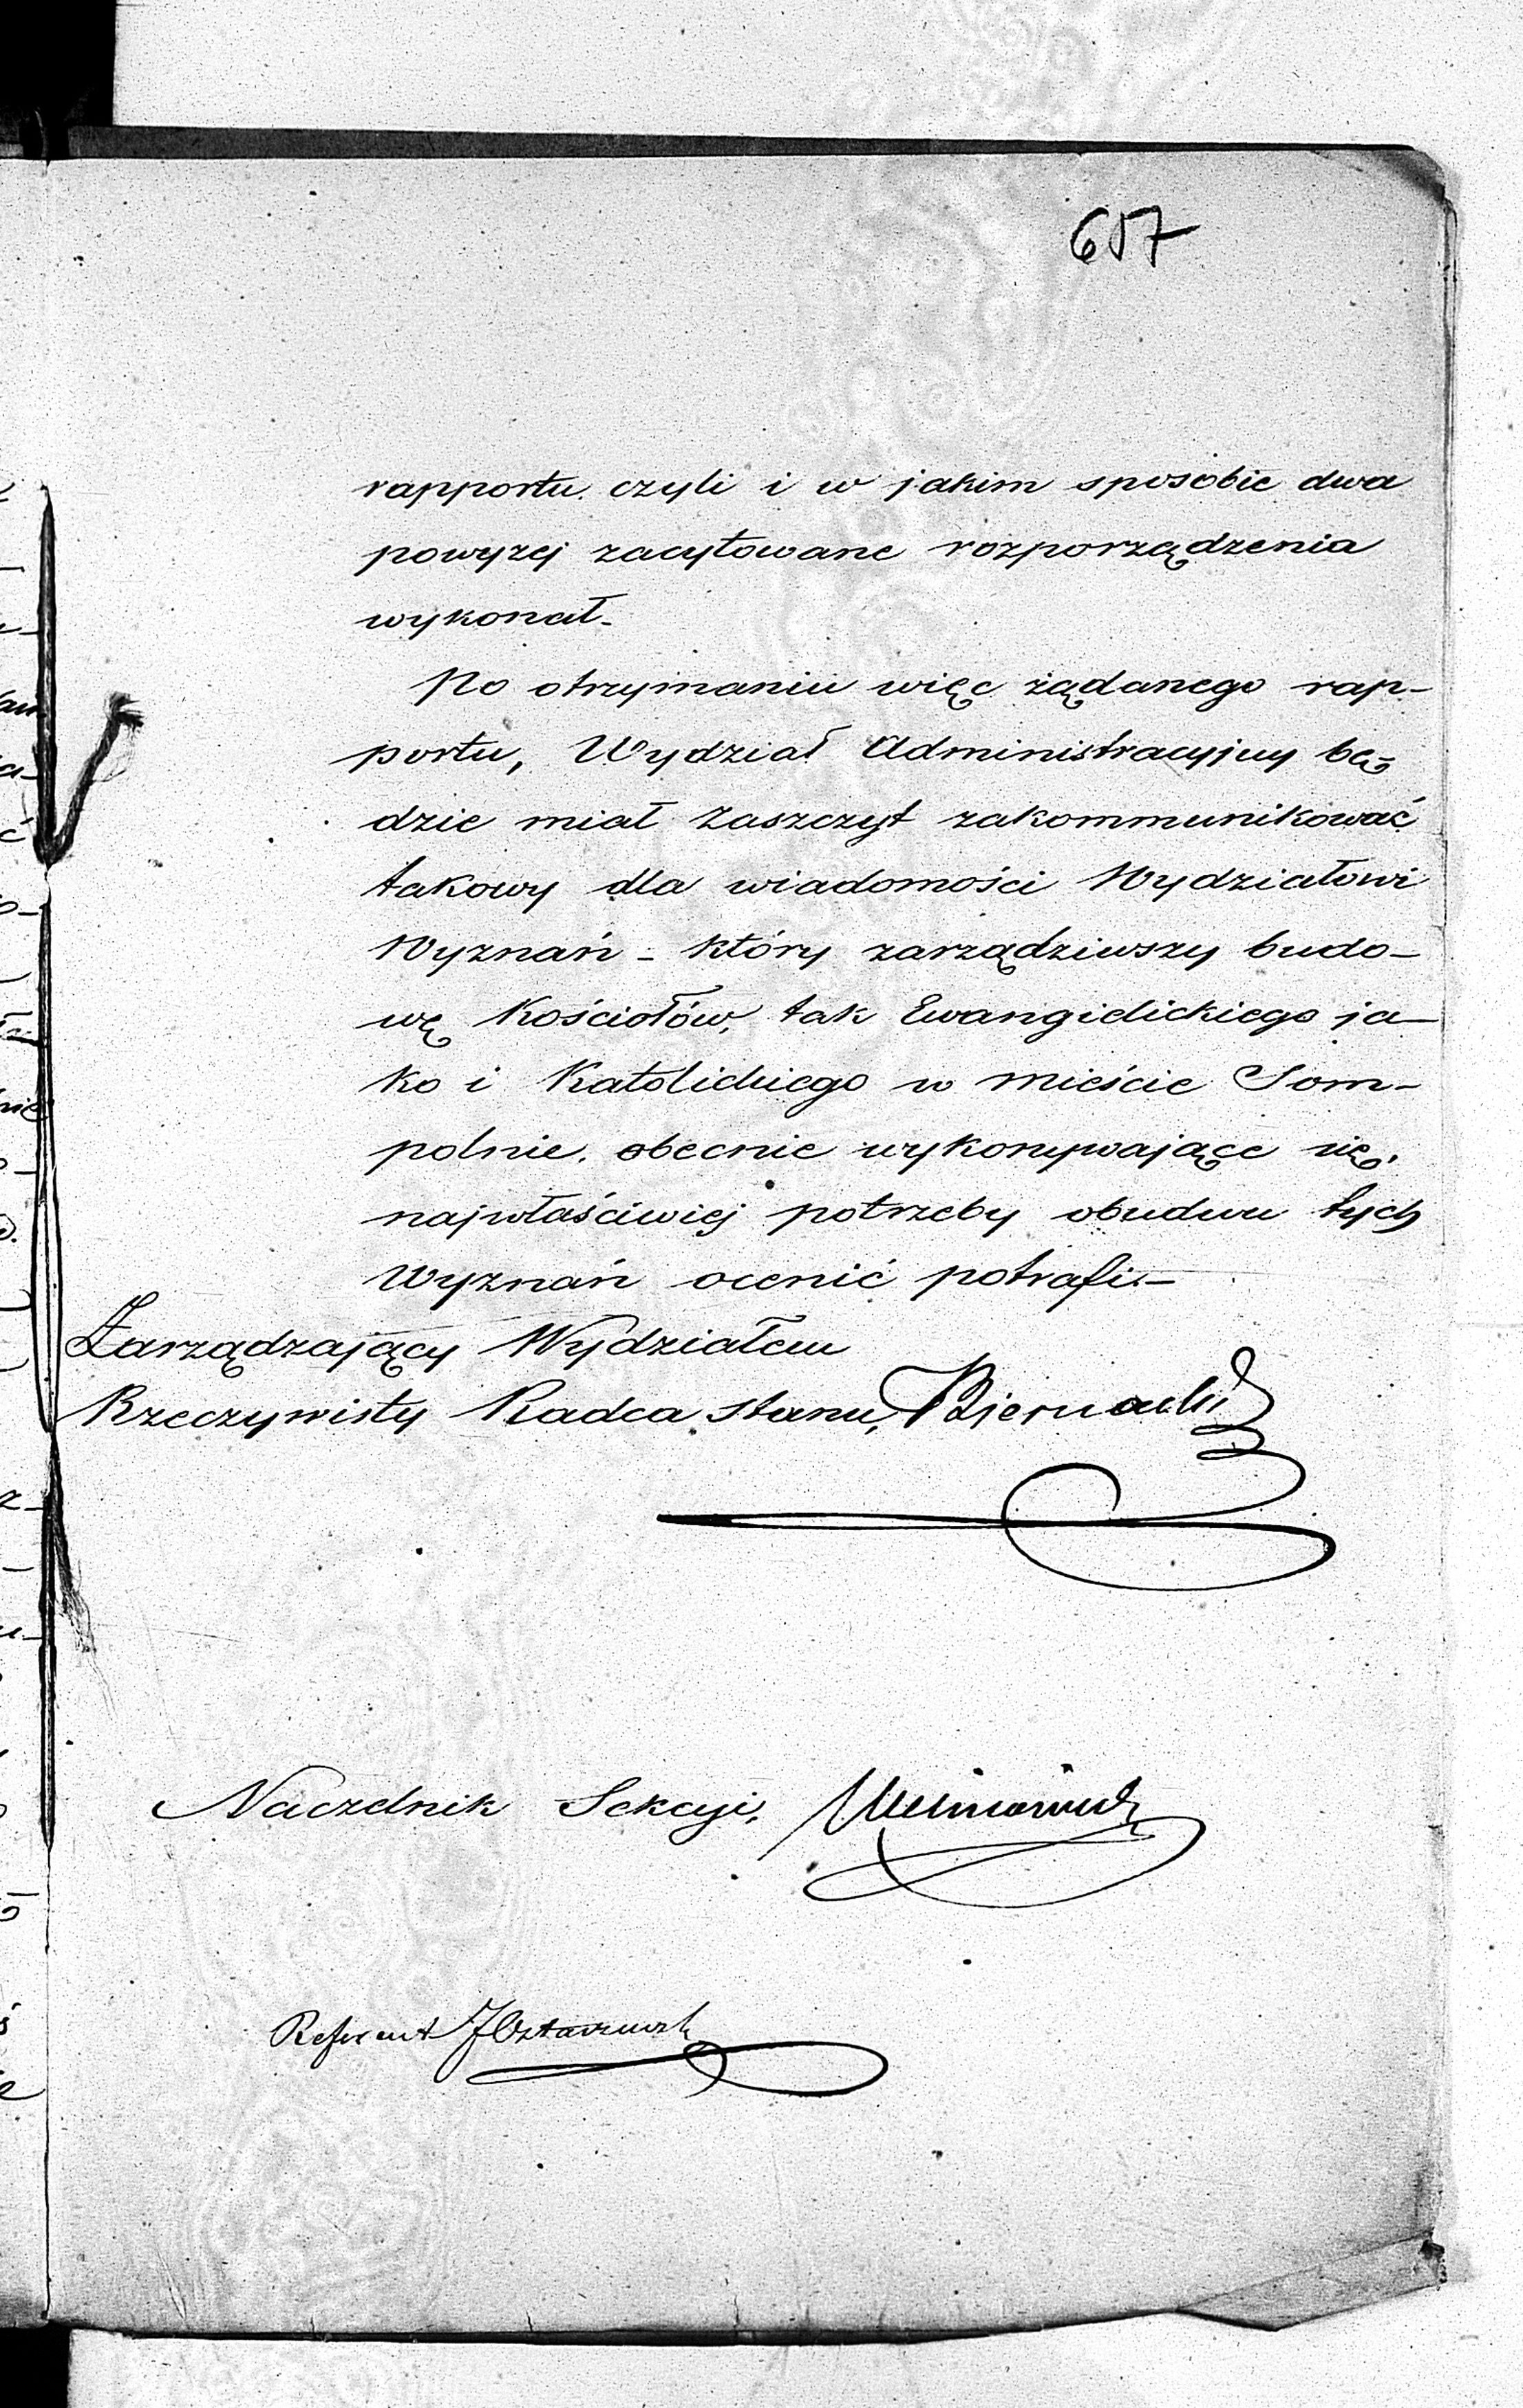 657
rapportu. czyli i w jakim sposobie dwa
powyżej zacytowane rozporządzenia
wykonał.
Po otrzymaniu więc żądanego rap-
portu, Wydział Administracyjny bę-
dzie miał zaszczyt zakommunikować
takowy dla wiadomości Wydziałowi
Wyznań - który zarządziwszy budo-
wę Kościołów, tak Ewangielickiego ja-
ko i Katolickiego w mieście Som-
polnie, obecnie wykonywające się,
najwłaściwiej potrzeby obudwu tych
Wyznań ocenić potrafi.-
Zarządzający Wydziałem
Rzeczywisty Radca Stanu, Biernacki
Naczelnik Sekcyi,
Referent